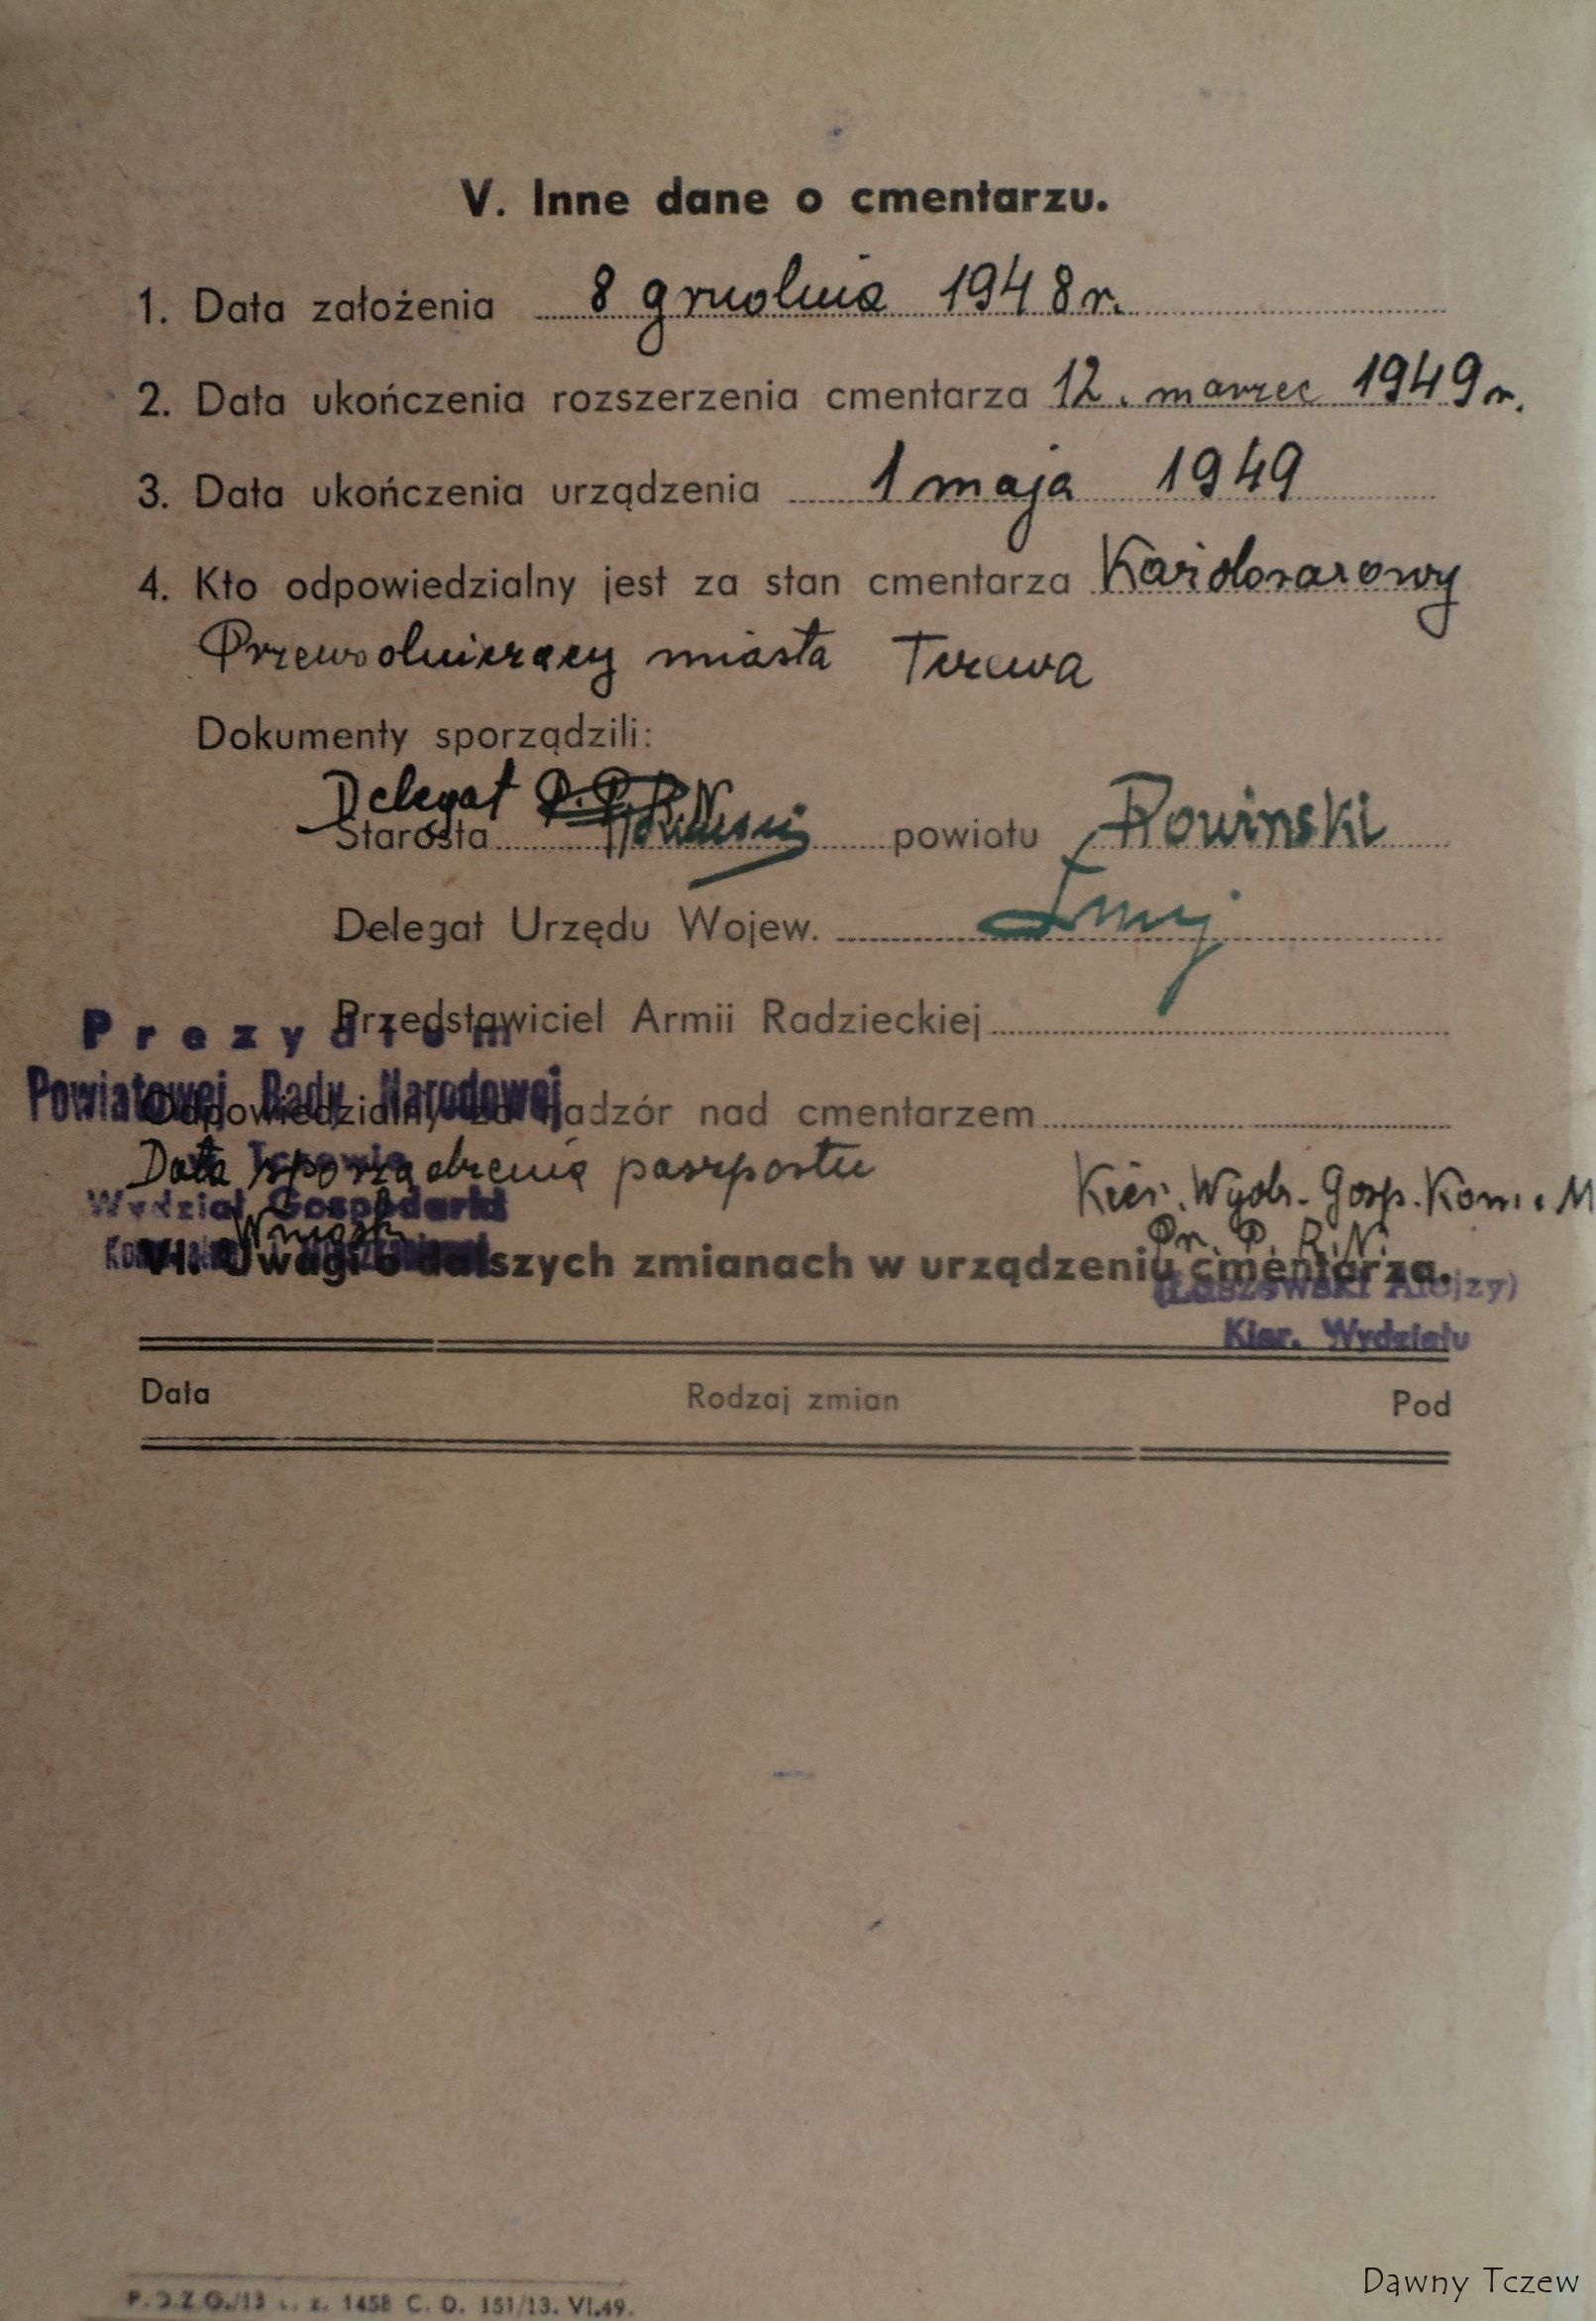 V. Inne dane o cmentarzu.
1. Data założenia 8 grudnia 1948 r.
2. Data ukończenia rozszerzenia cmentarza 12. marzec 1949 r.
3. Data ukończenia urządzenia 1 maja 1949
4. Kto odpowiedzialny jest za stan cmentarza Każdorazowy
Przewodniczący miasta Tczewa
Dokumenty sporządzili:
Delegat
Starosta powiatu Rowinski
Delegat Urzędu Wojew.
Przedstawiciel Armii Radzieckiej
Prezydium
Powiatowej Rady Narodowej
Odpowiedzialny za nadzór nad cmentarzem
w Tczewie
Data sporządzenia paszportu Kier. Wydz. Gosp. Kom. i M
Wydział Gospodarki
Pr. P. R. N.
VI. Uwagi o dalszych zmianach w urządzeniu cmentarza.
(Łaszewski Alojzy)
Kier. Wydziału
Data Rodzaj zmian Pod
1458 C. D. 151/13. VI.49.
Dawny Tczew